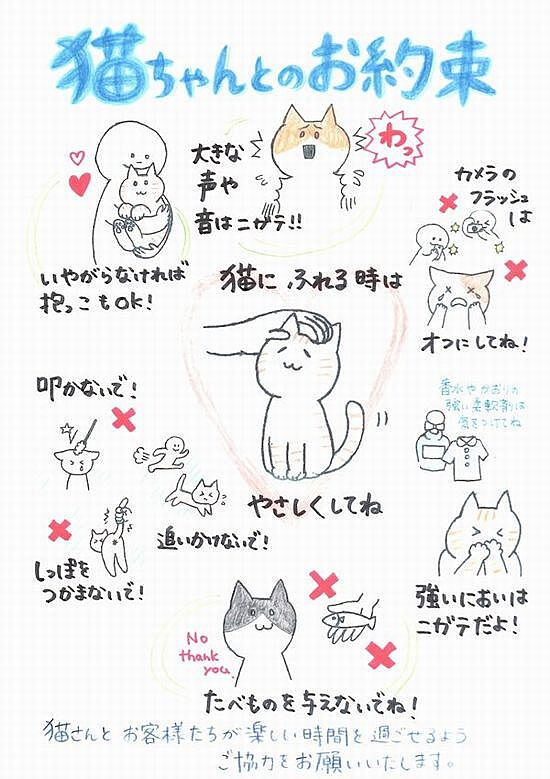 猫ちゃんとのお約束
大きな
声や
音はニガテ!!
わっ
カメラの
フラッシュ
は
オフにしてね!
いやがらなければ
抱っこもOK!
猫にふれる時は
やさしくしてね
叩かないで!
追いかけないで!
しっぽを
つかまないで!
香水やかおりの
強い柔軟剤は
気をつけてね
強いにおいは
ニガテだよ!
No
thank
you.
たべものを与えないでね!
猫さんとお客様たちが楽しい時間を過ごせるよう
ご協力をお願いいたします。